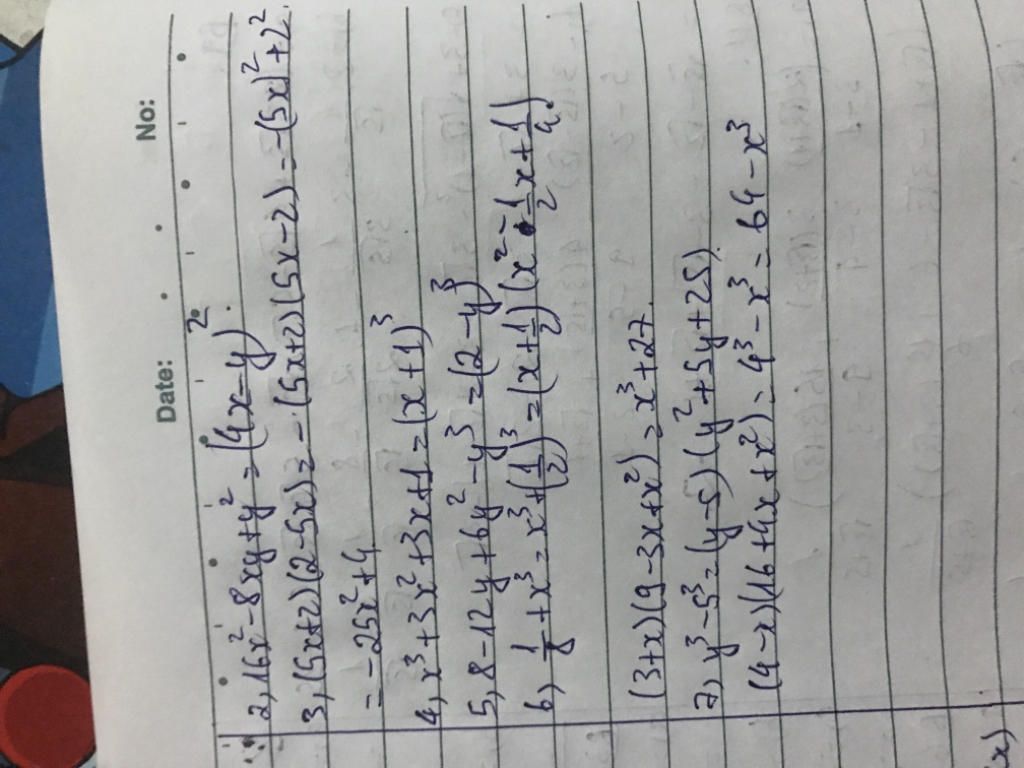 Date: No:
2, 16x² - 8xy + y² = (4x - y)².
3, (5x+2)(2-5x) = -(5x+2)(5x-2) = -(5x)² + 2².
= -25x² + 4
4, x³ + 3x² + 3x + 1 = (x+1)³
5, 8 - 12y + 6y² - y³ = (2-y)³
6, 1/8 + x³ = x³ + (1/2)³ = (x + 1/2)(x² - 1/2x + 1/4).
(3+x)(9-3x+x²) = x³ + 27.
7, y³ - 5³ = (y-5)(y² + 5y + 25).
(4-x)(16+4x+x²) = 4³ - x³ = 64 - x³
x)